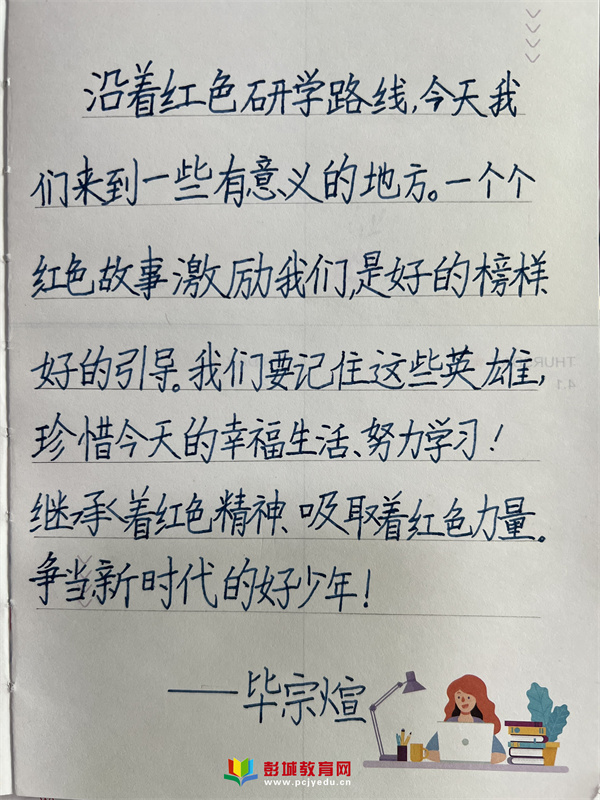 沿着红色研学路线,今天我
们来到一些有意义的地方。一个个
红色故事激励我们,是好的榜样、
好的引导。我们要记住这些英雄,
珍惜今天的幸福生活、努力学习!
继承着红色精神、吸取着红色力量。
争当新时代的好少年!
——毕宗煊
THUR
4.1
彭城教育网
www.pcjyedu.cn